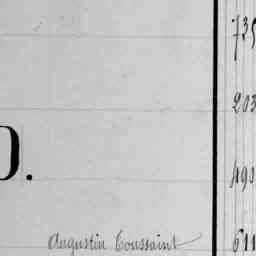 735
203
D.
493
Augustin Toussaint 611